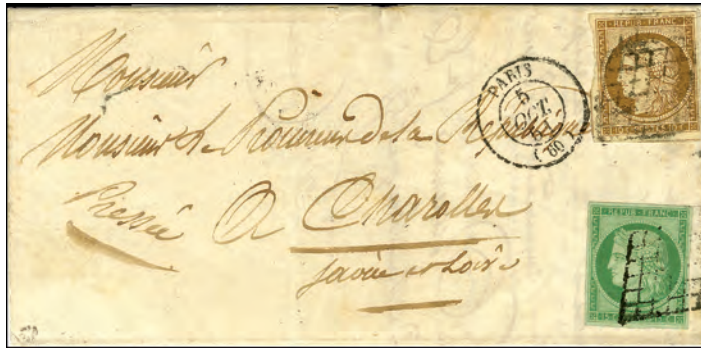 Monsieur
Monsieur le Procureur de la République
Pressée A Charolles
Saône et Loire
PARIS
5
OCT.
(60)
REPUB. FRANC.
REPUB. FRANC.